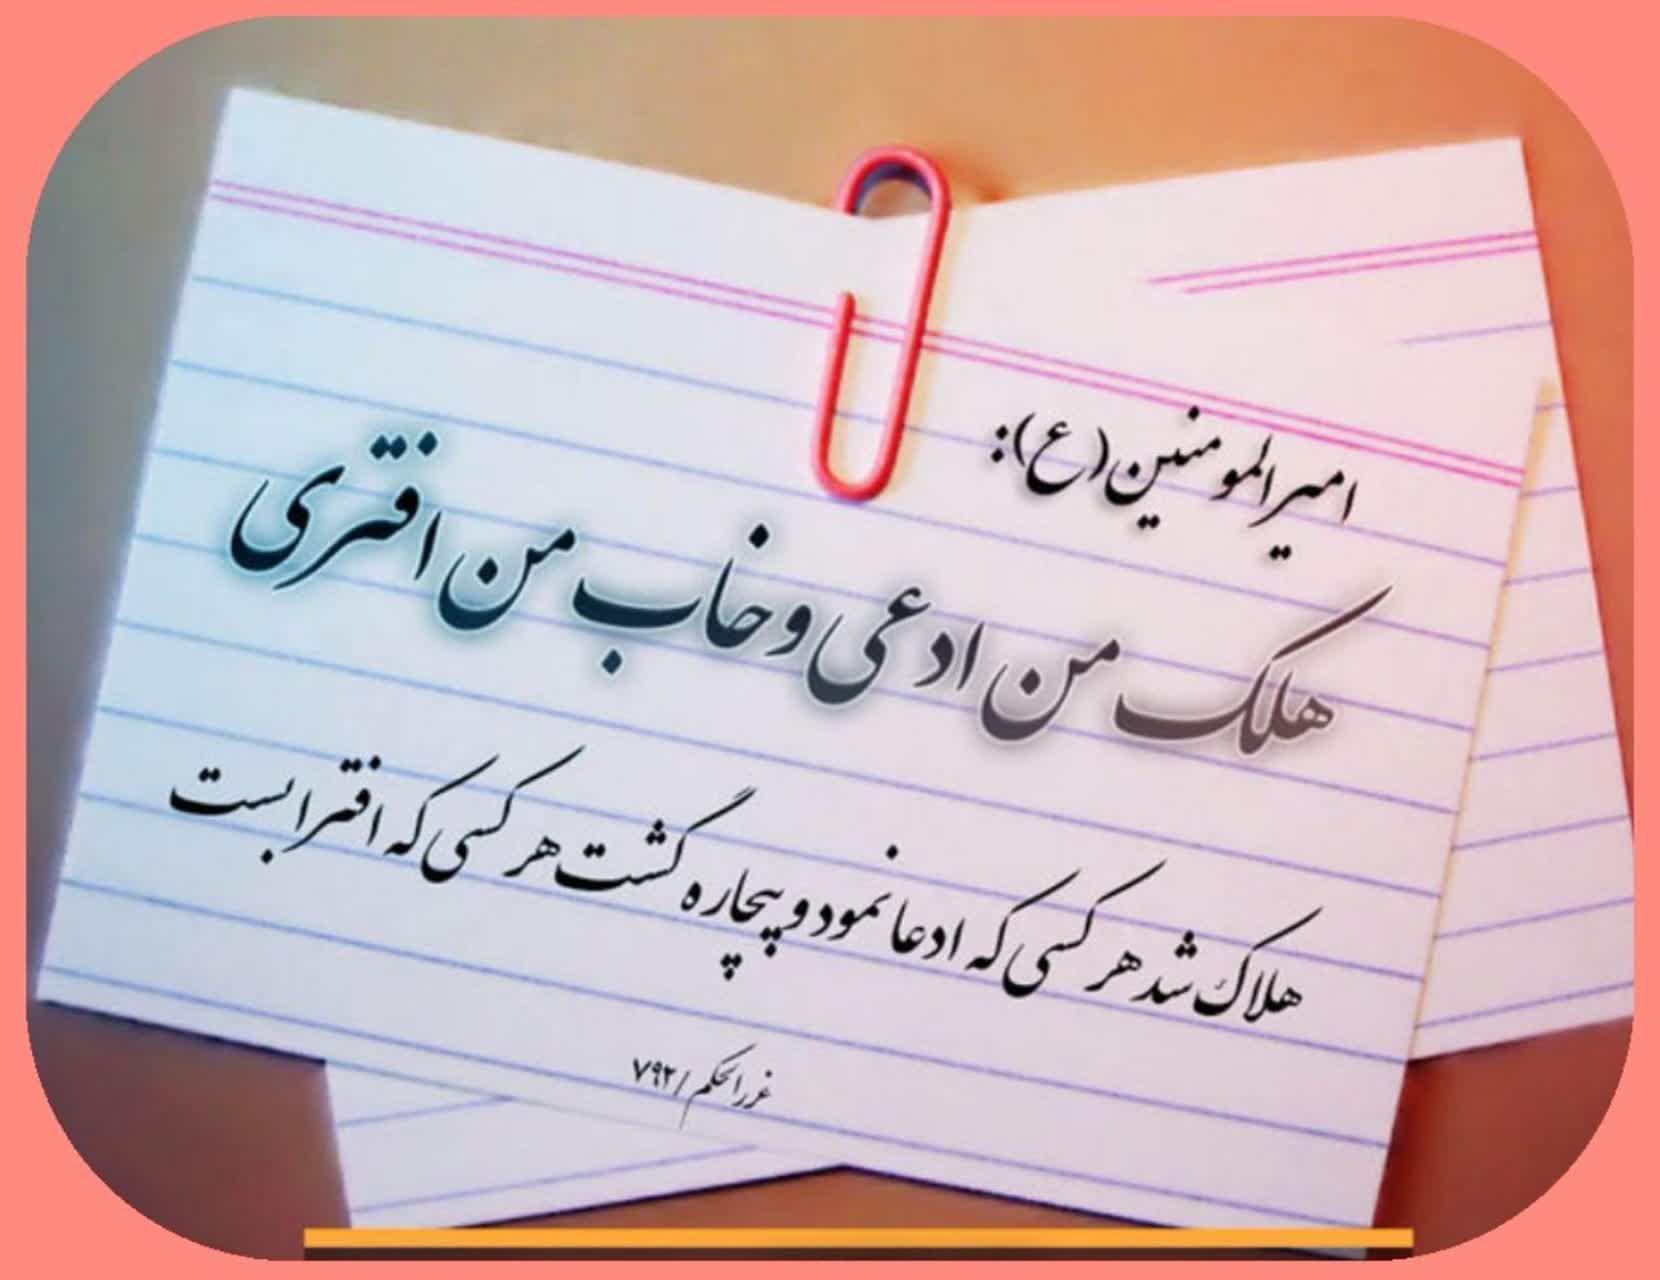 امیرالمومنین(ع):
هلک من ادعی و خاب من افتری
هلاک شد هر کسی که ادعا نمود و بیچاره گشت هر کسی که افترا بست
غررالحکم/۷۹۲